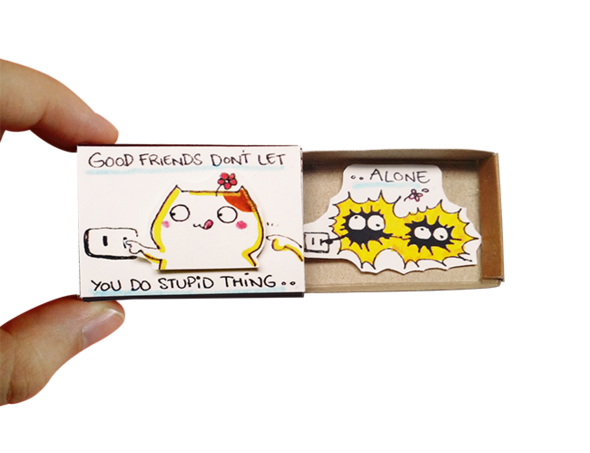 GOOD FRIENDS DON'T LET
YOU DO STUPID THING..
..ALONE